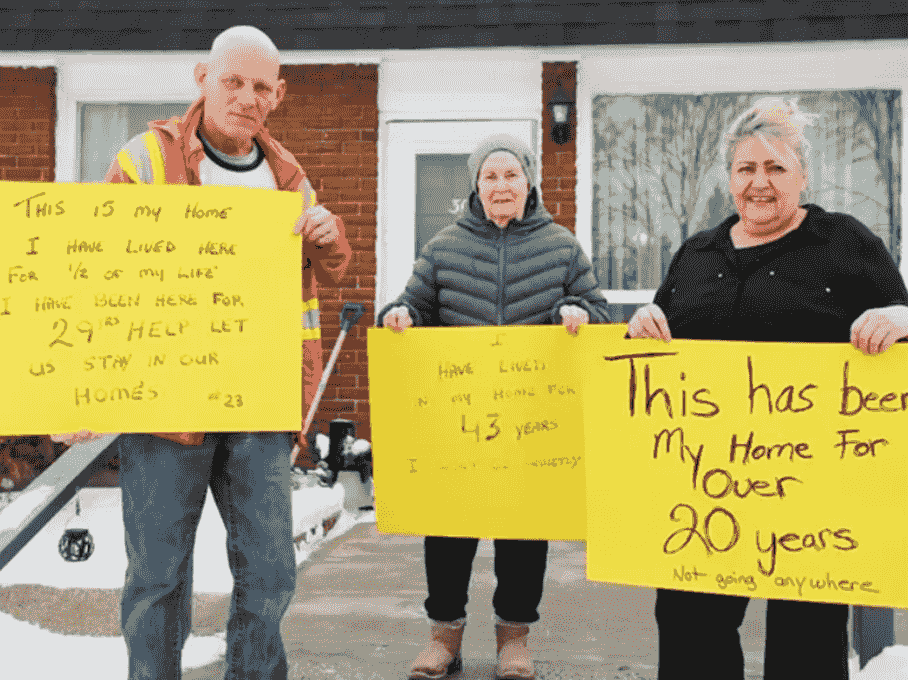 THIS IS MY HOME
I HAVE LIVED HERE
FOR 1/2 OF MY LIFE
I HAVE BEEN HERE FOR
29YRS HELP LET
US STAY IN OUR
HOMES #23
I
HAVE LIVED
IN MY HOME FOR
43 YEARS
I
This has been
My Home For
Over
20 years
Not going anywhere